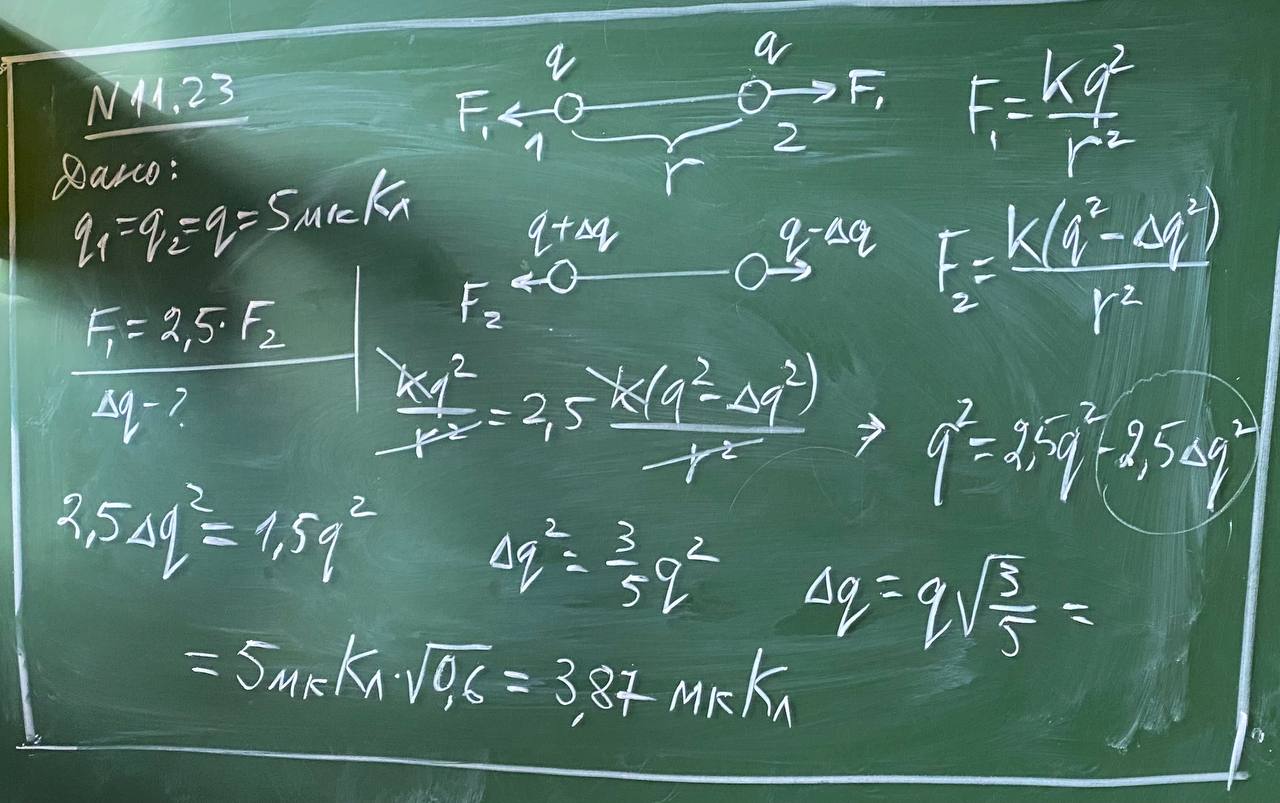 N 11,23
Дано:
q₁=q₂=q=5мкКл
F₁=2,5·F₂
Δq-?
q q
F₁ F₁
1 2
r
F₁=Kq²/r²
q+Δq q-Δq
F₂
F₂=K(q²-Δq²)/r²
kq²/r²=2,5 k(q²-Δq²)/r² → q²=2,5q²-2,5Δq²
2,5Δq²=1,5q² Δq²=3/5q² Δq=q√3/5=
=5мкКл·√0,6=3,87 мкКл